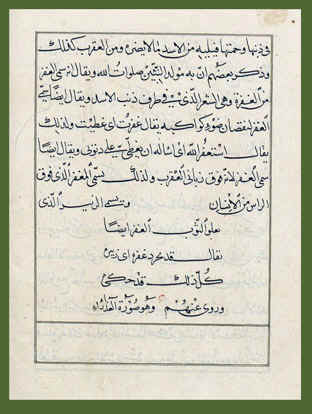 في ذنبها وحمتها فيليه من الاسد ما لا يضره ومن العقرب كذلك
وذكر بعضهم ان به مولد النبيين صلوات الله ويقال انه سمى الغفر
من الغفرة وهي الشعر الذي في طرف ذنب الاسد ويقال ايضا سمى
الغفر لنقصان ضوء كواكبه يقال غفرت اى غطيت ولذلك
يقال استغفر الله اى اساله ان يغطى على ذنوبي ويقال ايضا
سمى الغفر لانه فوق زبانى العقرب ولذلك يسمى المغفر الذي فوق
الراس من الانسان الذي
على الثوب الغفر ايضا
يقال قد غفره اى
كل ذلك قد حكى
وروى عنهم وهو صورة